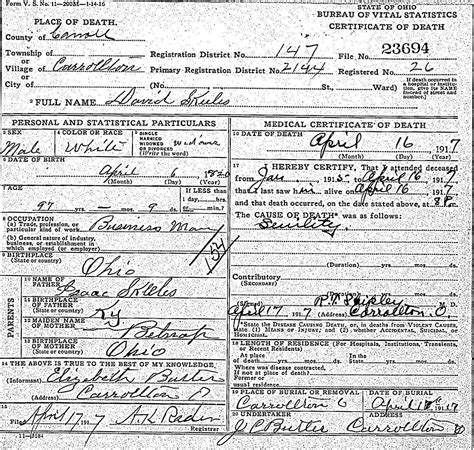 Form V. S. No. 11—200M—1-14-16
STATE OF OHIO
BUREAU OF VITAL STATISTICS
CERTIFICATE OF DEATH
PLACE OF DEATH.
County of Carroll
Township of
Registration District No. 147
File No. 23694
or
Village of Carrollton
Primary Registration District No. 2144
Registered No. 26
or
City of (No. St., Ward)
(If death occurred in a hospital or institution, give its NAME instead of street and number.)
2 FULL NAME David Skeeles
PERSONAL AND STATISTICAL PARTICULARS
3 SEX
Male
4 COLOR OR RACE
White
5 SINGLE MARRIED WIDOWED OR DIVORCED
(Write the word)
Widower
6 DATE OF BIRTH
April 6 1820
(Month) (Day) (Year)
7 AGE
97 yrs. — mos. 9 ds.
If LESS than
1 day, hrs.
or min.?
8 OCCUPATION
(a) Trade, profession, or particular kind of work Business Man
(b) General nature of industry, business, or establishment in which employed (or employer)
9 BIRTHPLACE
(State or country) Ohio
PARENTS
10 NAME OF FATHER Isaac Skeeles
11 BIRTHPLACE OF FATHER
(State or country)
12 MAIDEN NAME OF MOTHER
13 BIRTHPLACE OF MOTHER
(State or country) Ohio
14 THE ABOVE IS TRUE TO THE BEST OF MY KNOWLEDGE
(Informant) Elizabeth Butler
(Address) Carrollton O
15
Filed April 17 1917
Registrar
11—3184
MEDICAL CERTIFICATE OF DEATH
16 DATE OF DEATH
April 16 1917
(Month) (Day) (Year)
17 I HEREBY CERTIFY, That I attended deceased
from Jan 1915 to April 16 1917
that I last saw him alive on April 16 1917
and that death occurred, on the date stated above, at 8 P m.
The CAUSE OF DEATH* was as follows:
Senility
(Duration) yrs. mos. ds.
Contributory
(SECONDARY)
(Duration) yrs. mos. ds.
(Signed) R. T. Shipley M.D.
April 17 1917 (Address) Carrollton, O.
*State the DISEASE CAUSING DEATH, or, in deaths from VIOLENT CAUSES, state (1) MEANS OF INJURY; and (2) whether ACCIDENTAL, SUICIDAL, or HOMICIDAL.
18 LENGTH OF RESIDENCE (For Hospitals, Institutions, Transients, or Recent Residents)
At place of death yrs. mos. ds. In the State yrs. mos. ds.
Where was disease contracted,
If not at place of death?
Former or
usual residence
19 PLACE OF BURIAL OR REMOVAL
Carrollton O
DATE OF BURIAL
April 1917
20 UNDERTAKER
J C Butler
ADDRESS
Carrollton